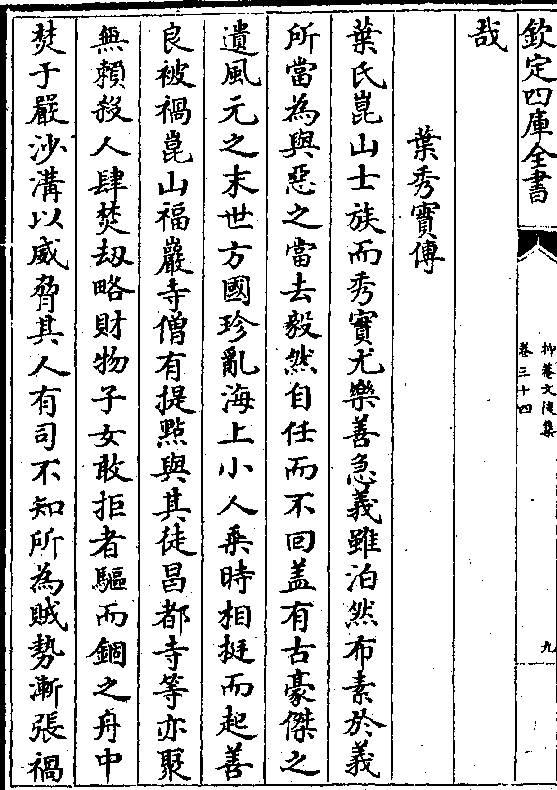 欽定四庫全書
抑菴文後集
卷三十四
九
哉
葉秀實傳
葉氏崑山士族而秀實尤樂善急義雖泊然布素於義
所當為與惡之當去毅然自任而不回盖有古豪傑之
遺風元之末世方國珍亂海上小人乗時相挺而起善
良被禍崑山福巖寺僧有提㸃與其徒昌都寺等亦聚
無賴殺人肆焚刼略財物子女敢拒者驅而錮之舟中
焚于嚴沙溝以威脅其人有司不知所為賊勢漸張禍